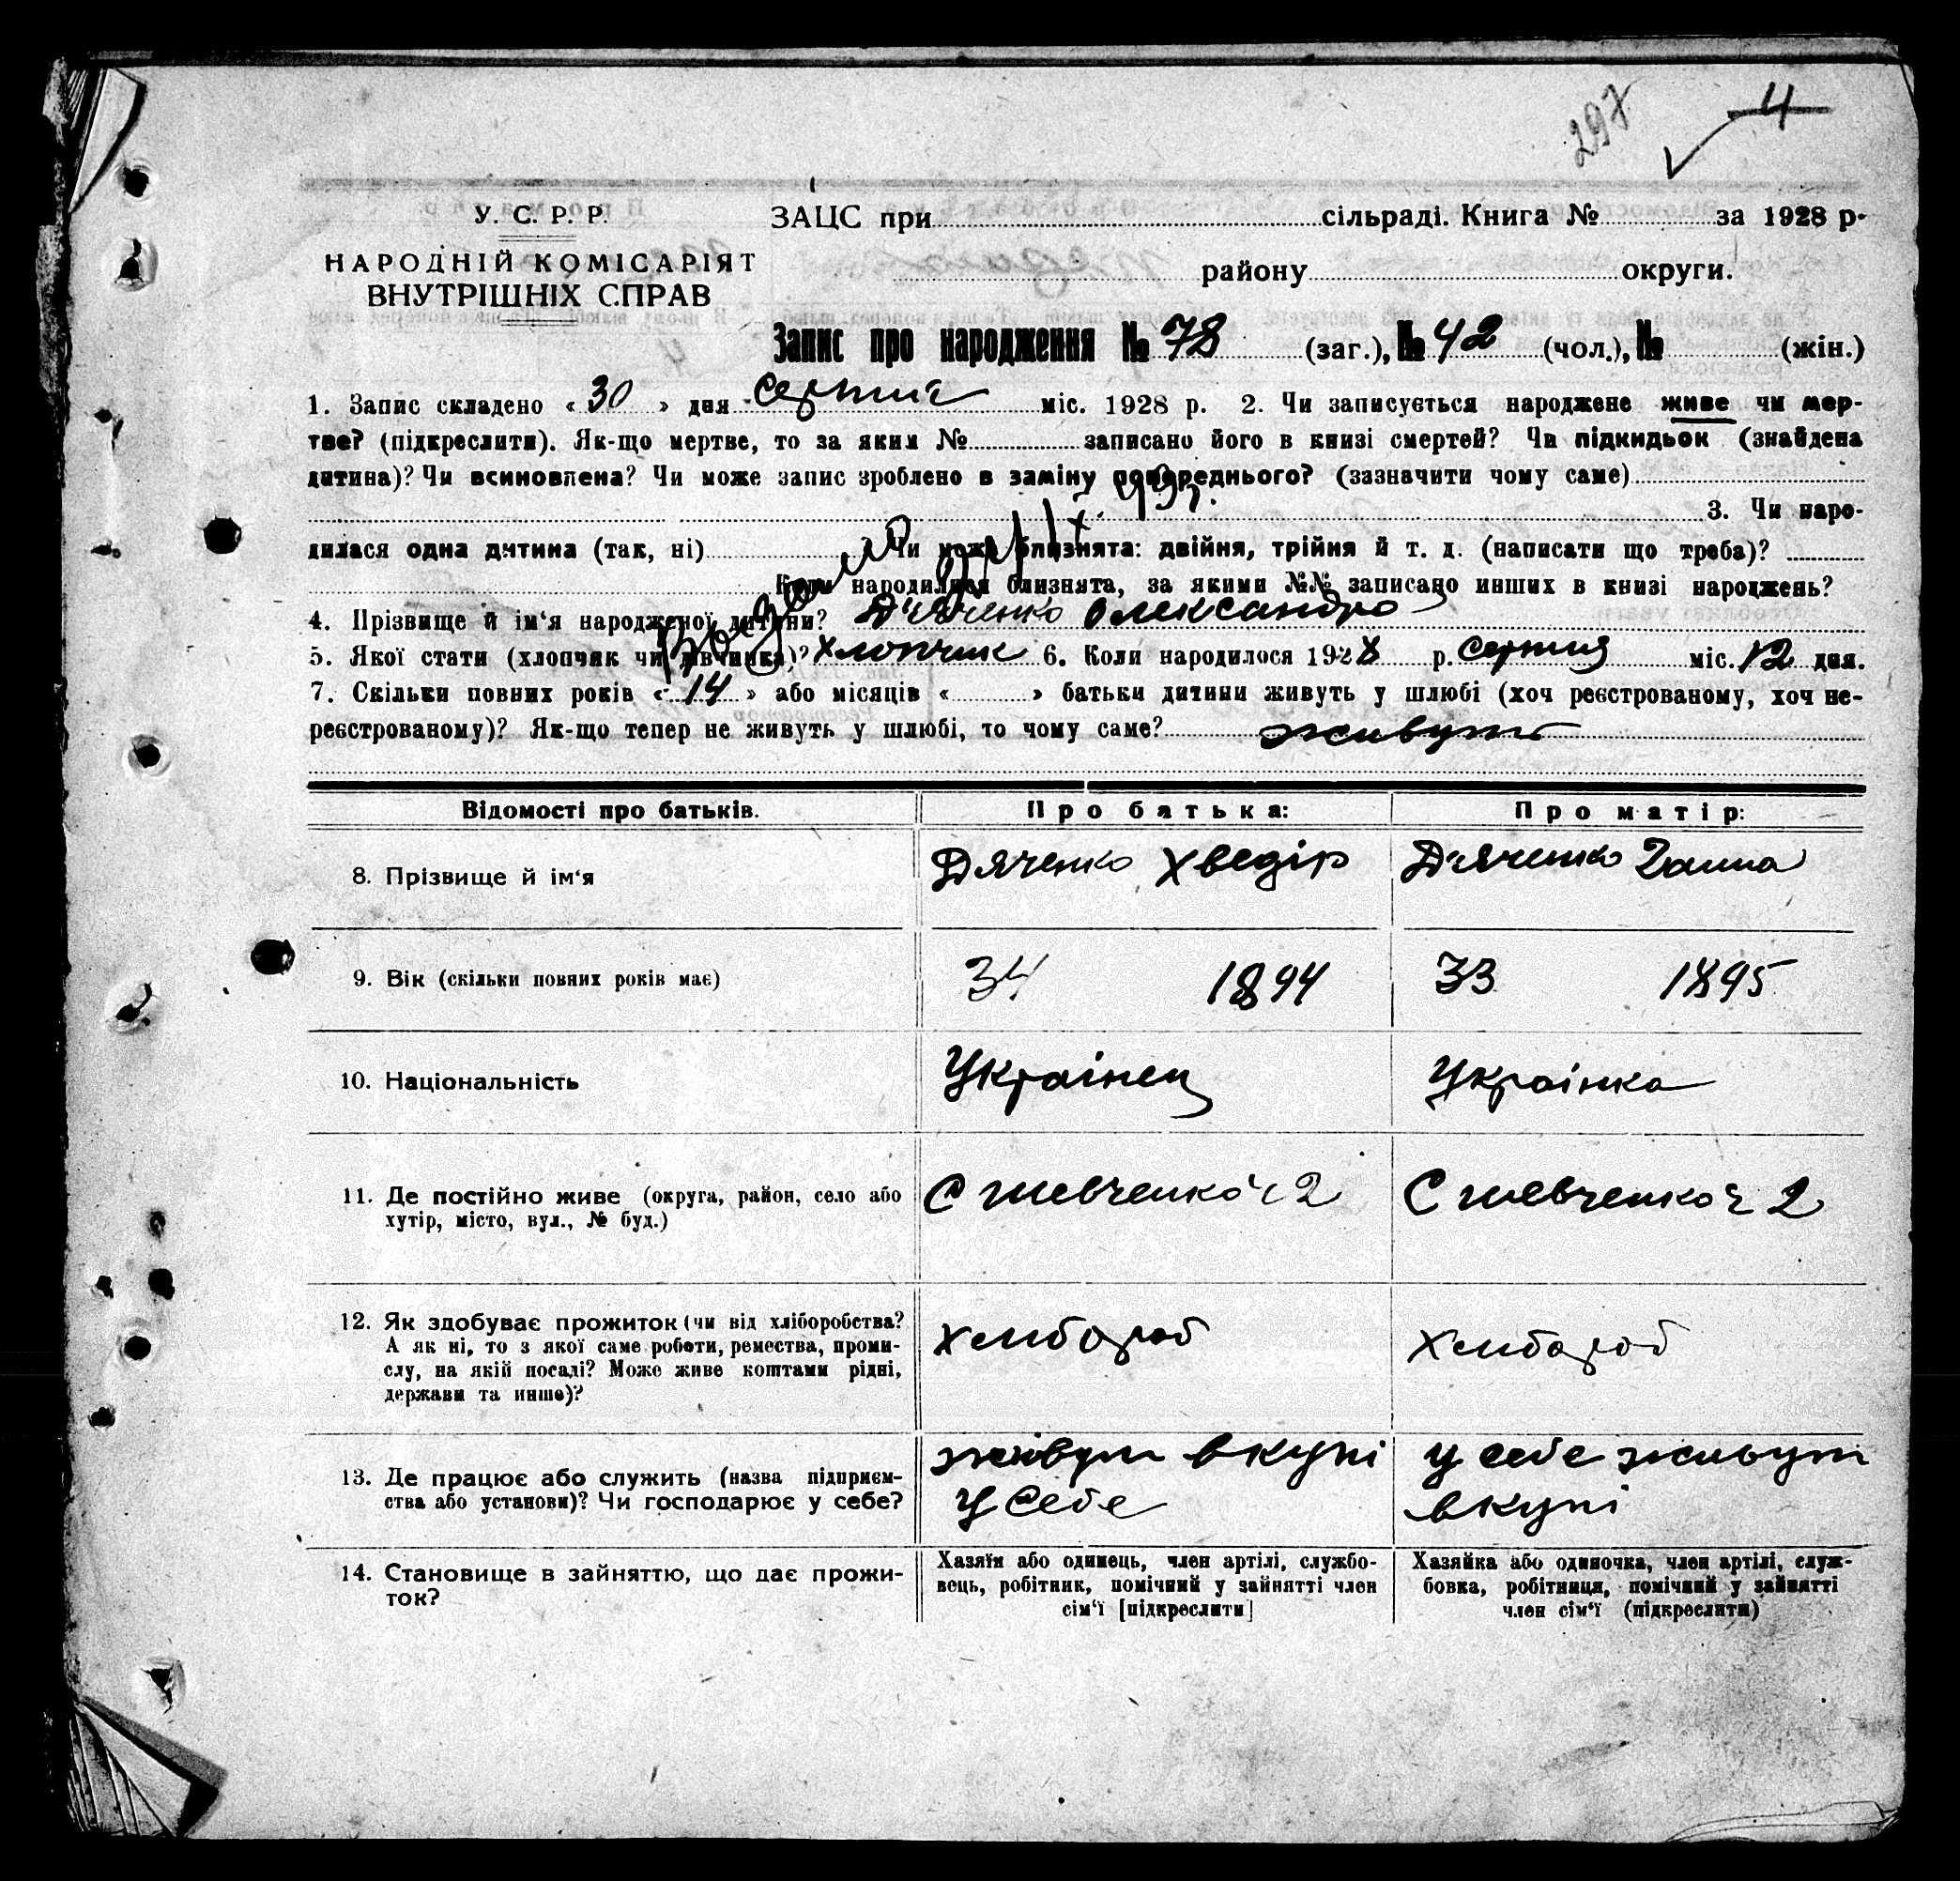 297 4
У. С. Р. Р.
НАРОДНІЙ КОМІСАРІЯТ
ВНУТРІШНІХ СПРАВ
ЗАЦС при сільраді. Книга № за 1928 р.
району округи.
Запис про народження № 78 (заг.), № 42 (чол.), № (жін.)
1. Запис складено « 30 » дня серпня міс. 1928 р. 2. Чи записується народжене живе чи мер-
тве? (підкреслити). Як-що мертве, то за яким № записано його в книзі смертей? Чи підкидьок (знайдена
дитина)? Чи всиновлена? Чи може запис зроблено в заміну попереднього? (зазначити чому саме)
3. Чи наро-
дилася одна дитина (так, ні) Чи може близнята: двійня, трійня й т. д. (написати що треба)?
Коли народилися близнята, за якими №№ записано инших в книзі народжень?
4. Прізвище й ім'я народженої дитини? Дяченко Олександро
5. Якої стати (хлопчик чи дівчинка)? Хлопчик 6. Коли народилося 1928 р. серпня міс. 12 дня.
7. Скільки повних років « 14 » або місяців « » батьки дитини живуть у шлюбі (хоч реєстрованому, хоч не-
реєстрованому)? Як-що тепер не живуть у шлюбі, то чому саме? живуть
Відомості про батьків. Про батька: Про матір:
8. Прізвище й ім'я Дяченко Хведір Дяченко Ганна
9. Вік (скільки повних років має) 34 1894 33 1895
10. Національність Українец Українка
11. Де постійно живе (округа, район, село або
хутір, місто, вул., № буд.)
С Шевченко 2 С Шевченко 2
12. Як здобуває прожиток (чи від хліборобства?
А як ні, то з якої саме роботи, ремества, проми-
слу, на якій посаді? Може живе коштами рідні,
держави та инше)?
Хлибороб Хлибороб
13. Де працює або служить (назва підприєм-
ства або установи)? Чи господарює у себе?
живут вкупі
у себе
у себе живут
вкупі
14. Становище в зайняттю, що дає прожи-
ток?
Хазяїн або одинець, член артілі, службо-
вець, робітник, помічний у зайнятті член
сім'ї [підкреслити]
Хазяйка або одиночка, член артілі, служ-
бовка, робітниця, помічний у зайнятті
член сім'ї (підкреслити)